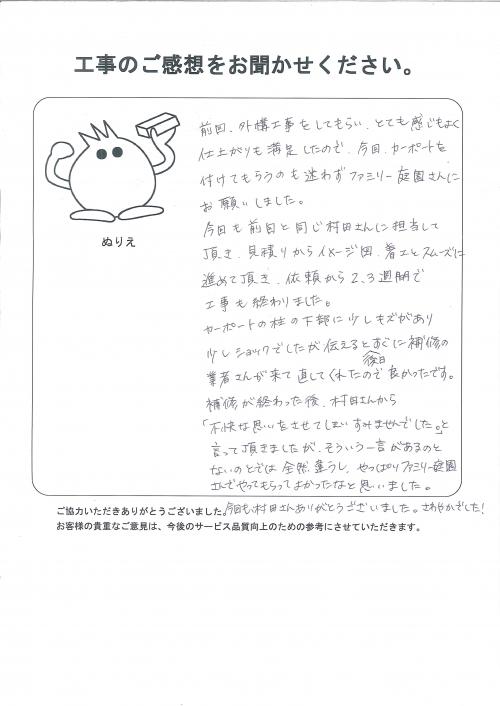 工事のご感想をお聞かせください。
ぬりえ
前回、外構工事をしてもらい、とても感じもよく
仕上がりも満足したので、今回、カーポートを
付けてもらうのも迷わずファミリー庭園さんに
お願いしました。
今回も前回と同じ村田さんに担当して
頂き、見積りからイメージ図、着工とスムーズに
進めて頂き、依頼から2、3週間で
工事も終わりました。
カーポートの柱の下部に少しキズがあり
少しショックでしたが伝えるとすぐに補修の
後日
業者さんが来て直してくれたので良かったです。
補修が終わった後、村田さんから
「不快な思いをさせてしまいすみませんでした。」と
言って頂きましたが、そういう一言があるのと
ないのとでは全然違うし、やっぱりファミリー庭園
さんでやってもらってよかったなと思いました。
今回も村田さんありがとうございました。さわやかでした!
ご協力いただきありがとうございました。
お客様の貴重なご意見は、今後のサービス品質向上のための参考にさせていただきます。